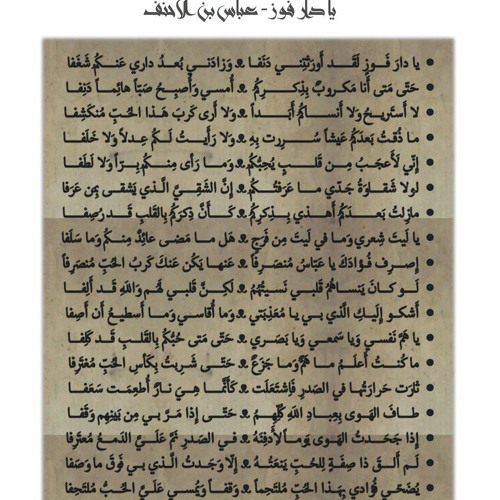 يا دار فوز - عباس بن الأحنف
• يا دارَ فَوزٍ لَقَد أَورَثتِني دَنَفا ه وَزادَني بُعدُ داري عَنكُم شَغَفا
• حَتّى مَتى أَنا مَكروبٌ بِذِكرِكُمُ ه أُمسي وَأُصبِحُ صَبّاً هائِماً دَنِفا
• لا أَستَريحُ وَلا أَنساكُمُ أَبَداً ه وَلا أَرى كَربَ هَذا الحُبِّ مُنكَشِفا
• ما ذُقتُ بَعدَكُمُ عَيشاً سُرِرتُ بِهِ ه وَلا رَأَيتُ لَكُم عِدلاً وَلا خَلَفا
• إِنّي لَأَعجَبُ مِن قَلبٍ يُحِبُّكُمُ ه وَما رَأى مِنكُمُ بِرّاً وَلا لَطَفا
• لَولا شَقاوَةُ جَدّي ما عَرَفتُكُمُ ه إِنَّ الشَقِيَّ الَّذي يَشقى بِمَن عَرَفا
• مازِلتُ بَعدَكُمُ أَهذي بِذِكرِكُمُ ه كَأَنَّ ذِكرَكُمُ بِالقَلبِ قَد رُصِفا
• يا لَيتَ شِعري وَما في لَيتَ مِن فَرَجٍ ه هَل ما مَضى عائِدٌ مِنكُم وَما سَلَفا
• إِصرِف فُؤادَكَ يا عَبّاسُ مُنصَرِفاً ه عَنها يَكُن عَنكَ كَربُ الحُبِّ مُنصَرِفا
• لَو كانَ يَنساهُمُ قَلبي نَسيتُهُمُ ه لَكِنَّ قَلبي لَهُم وَاللَهِ قَد أَلِفا
• أَشكو إِلَيكِ الَّذي بي يا مُعَذِّبَتي ه وَما أُقاسي وَما أَسطيعُ أَن أَصِفا
• يا هَمَّ نَفسي وَيا سَمعي وَيا بَصَري ه حَتّى مَتى حُبُّكُم بِالقَلبِ قَد كَلِفا
• ما كُنتُ أَعلَمُ ما هَمٌّ وَما جَزَعٌ ه حَتّى شَرِبتُ بِكَأسِ الحُبِّ مُغتَرِفا
• ثارَت حَرارَتُها في الصَدرِ فَاِشتَعَلَت ه كَأَنَّما هِيَ نارٌ أُطعِمَت سَعَفا
• طافَ الهَوى بِعِبادِ اللَهِ كُلِّهِمُ ه حَتّى إِذا مَرَّ بي مِن بَينِهِم وَقَفا
• إِذا جَحَدتُ الهَوى يَوماً لِأَدفِنَهُ ه في الصَدرِ نَمَّ عَلَيَّ الدَمعُ مُعتَرِفا
• لَم أَلقَ ذا صِفَةٍ لِلحُبِّ يَنعَتُهُ ه إِلّا وَجَدتُ الَّذي بي فَوقَ ما وَصَفا
• يُضحي فُؤادي بِهَذا الحُبِّ مُلتَحِماً ه وَقفاً وَيُمسي عَلَيَّ الحُبُّ مُلتَحِفا